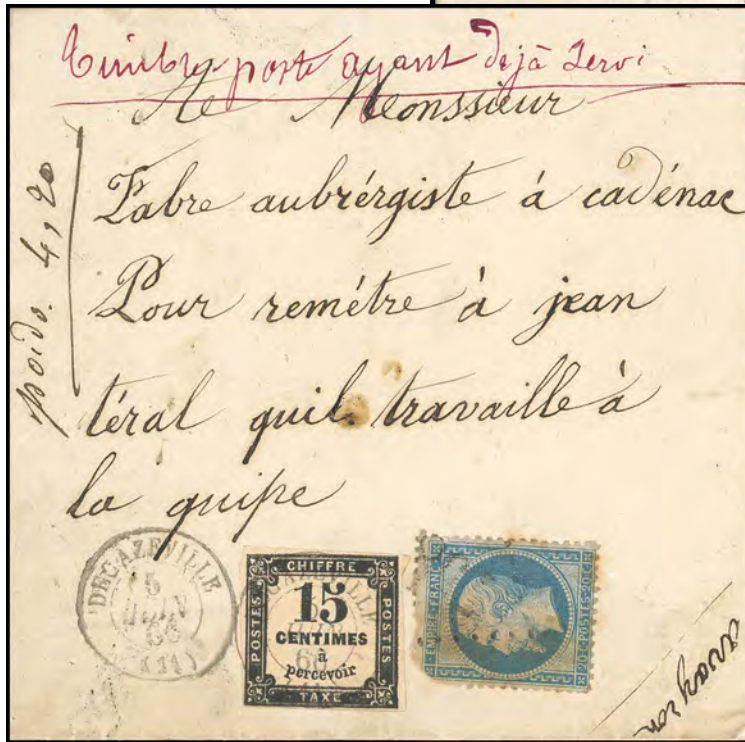 Timbre poste ayant dejà servi
A Monssieur
Fabre aubrérgiste á cadénac
Pour remétre à jean
téral quil travaille à
la quipe
poids. 4,20
DECAZEVILLE
5
JUIN
(11)
CHIFFRE
15
CENTIMES
à
percevoir
TAXE
POSTES
POSTES
EMPIRE FRANC
20 C POSTES 20 C
avayron